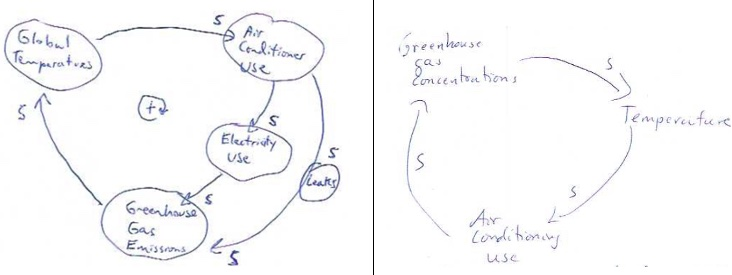 Global
Temperatures
S
Air
Conditioner
Use
S
+
S
Electricity
Use
S
Leaks
S
Greenhouse
Gas
Emissions
S
S
Greenhouse
gas
concentrations
S
Temperature
S
Air
Conditioning
use
S